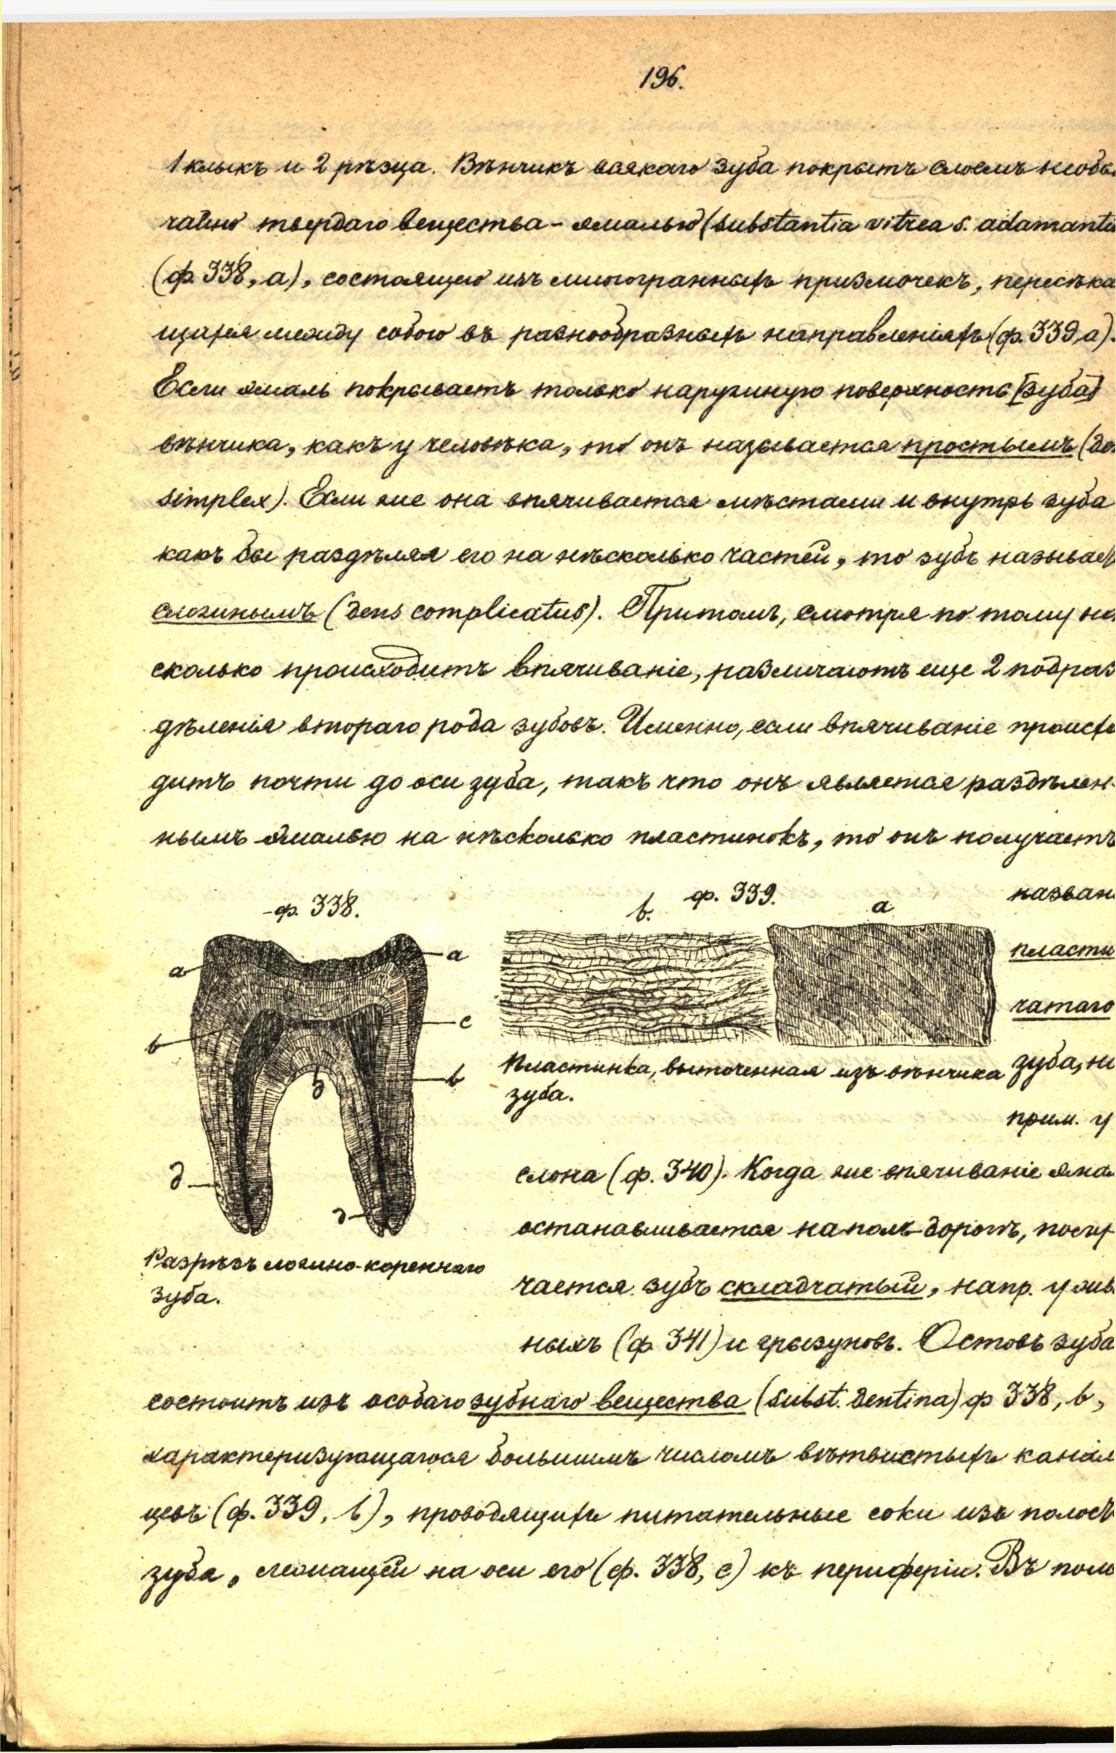 196.
1 клыкъ и 2 рѣзца. Вѣнчикъ всякаго зуба покрытъ слоемъ необы
чайно твердаго вещества - эмалью (substantia vitrea s. adamanti
(ф. 338, а), состоящею изъ многогранныхъ призмочекъ, пересѣка
щихся между собою въ разнообразныхъ направленіяхъ (ф. 339, а).
Если эмаль покрываетъ только наружную поверхность [зуба]
вѣнчика, какъ у человѣка, то онъ называется простымъ (de
simplex). Если же она впячивается мѣстами и внутрь зуба
какъ бы раздѣляя его на нѣсколько частей, то зубъ называет
сложнымъ (dens complicatus). Притомъ, смотря по тому на
сколько происходитъ впячиваніе, различаютъ еще 2 подраз
дѣленія втораго рода зубовъ. Именно, если впячиваніе происхо
дитъ почти до оси зуба, такъ что онъ является раздѣлен-
нымъ эмалью на нѣсколько пластинокъ, то онъ получаетъ
назван
пласти
чатаго
зуба, на
прим. у
ф. 338.
a
a
b
c
b
д
д
д
Разрѣзъ ложно-кореннаго
зуба.
ф. 339.
b.
a
Пластинка, выточенная изъ вѣнчика
зуба.
слона (ф. 340). Когда же впячиваніе эма
останавливается на полъ-дорогѣ, полу
чается зубъ складчатый, напр. у жв
ныхъ (ф. 341) и грызуновъ. Остовъ зуба
состоитъ изъ особаго зубнаго вещества (subst. dentina) ф 338, b,
характеризующагося большимъ числомъ вѣтвистыхъ канал
цевъ (ф. 339, b), проводящихъ питательные соки изъ полост
зуба, лежащей на оси его (ф. 338, c) къ периферіи. Въ поло